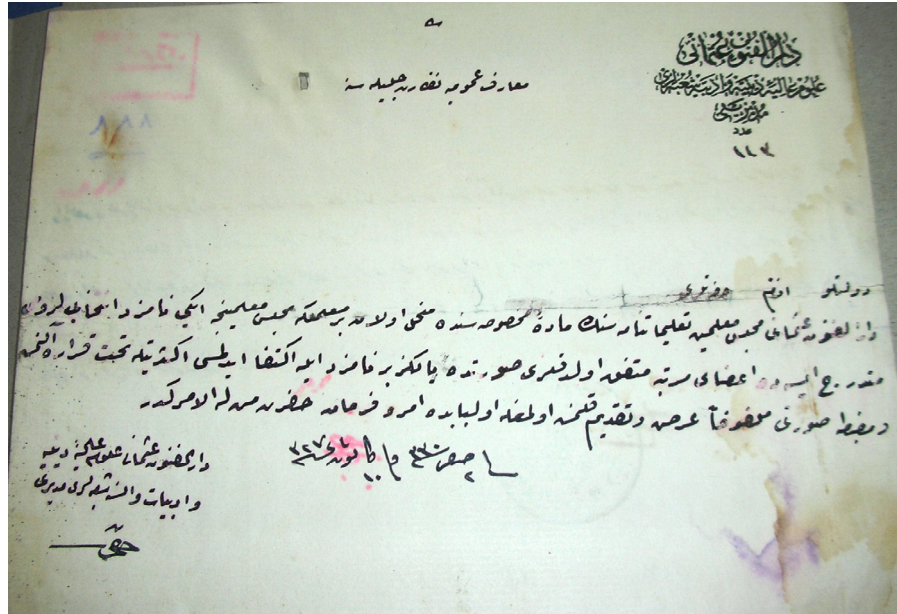 دار الفنون عثمانی
علوم عالیهٔ دینیه و ادبیه شعبه لری
مدیریتی
عدد
١٤٣
معارف عمومیه نظارت جلیله سنه
دولتلو افندم حضرتلری
دار الفنون عثمانی مجلس معلمین تعلیماتنامه سنك مادهٔ مخصوصه سنده منحل اولان بر معلملكه مجلس معلمینجه ایكی نامزد انتخابی لزومی
مندرج ایسه ده اعضای مرتبه متفق اولدقلری صورتده یالكز بر نامزد ایله اكتفا ایدلمسی اكثریتله تحت قراره آلنمش
و مضبطه صورتی ملفوفاً عرض و تقدیم قلنمش اولمغله اولبابده امر و فرمان حضرت من له الامركدر
فی ٢ صفر ٣٣٠ و فی ١٠ كانون ثانی ٣٢٧
دار الفنون عثمانی علوم عالیهٔ دینیه
و ادبیات والسنه شعبه لری مدیری
حقی